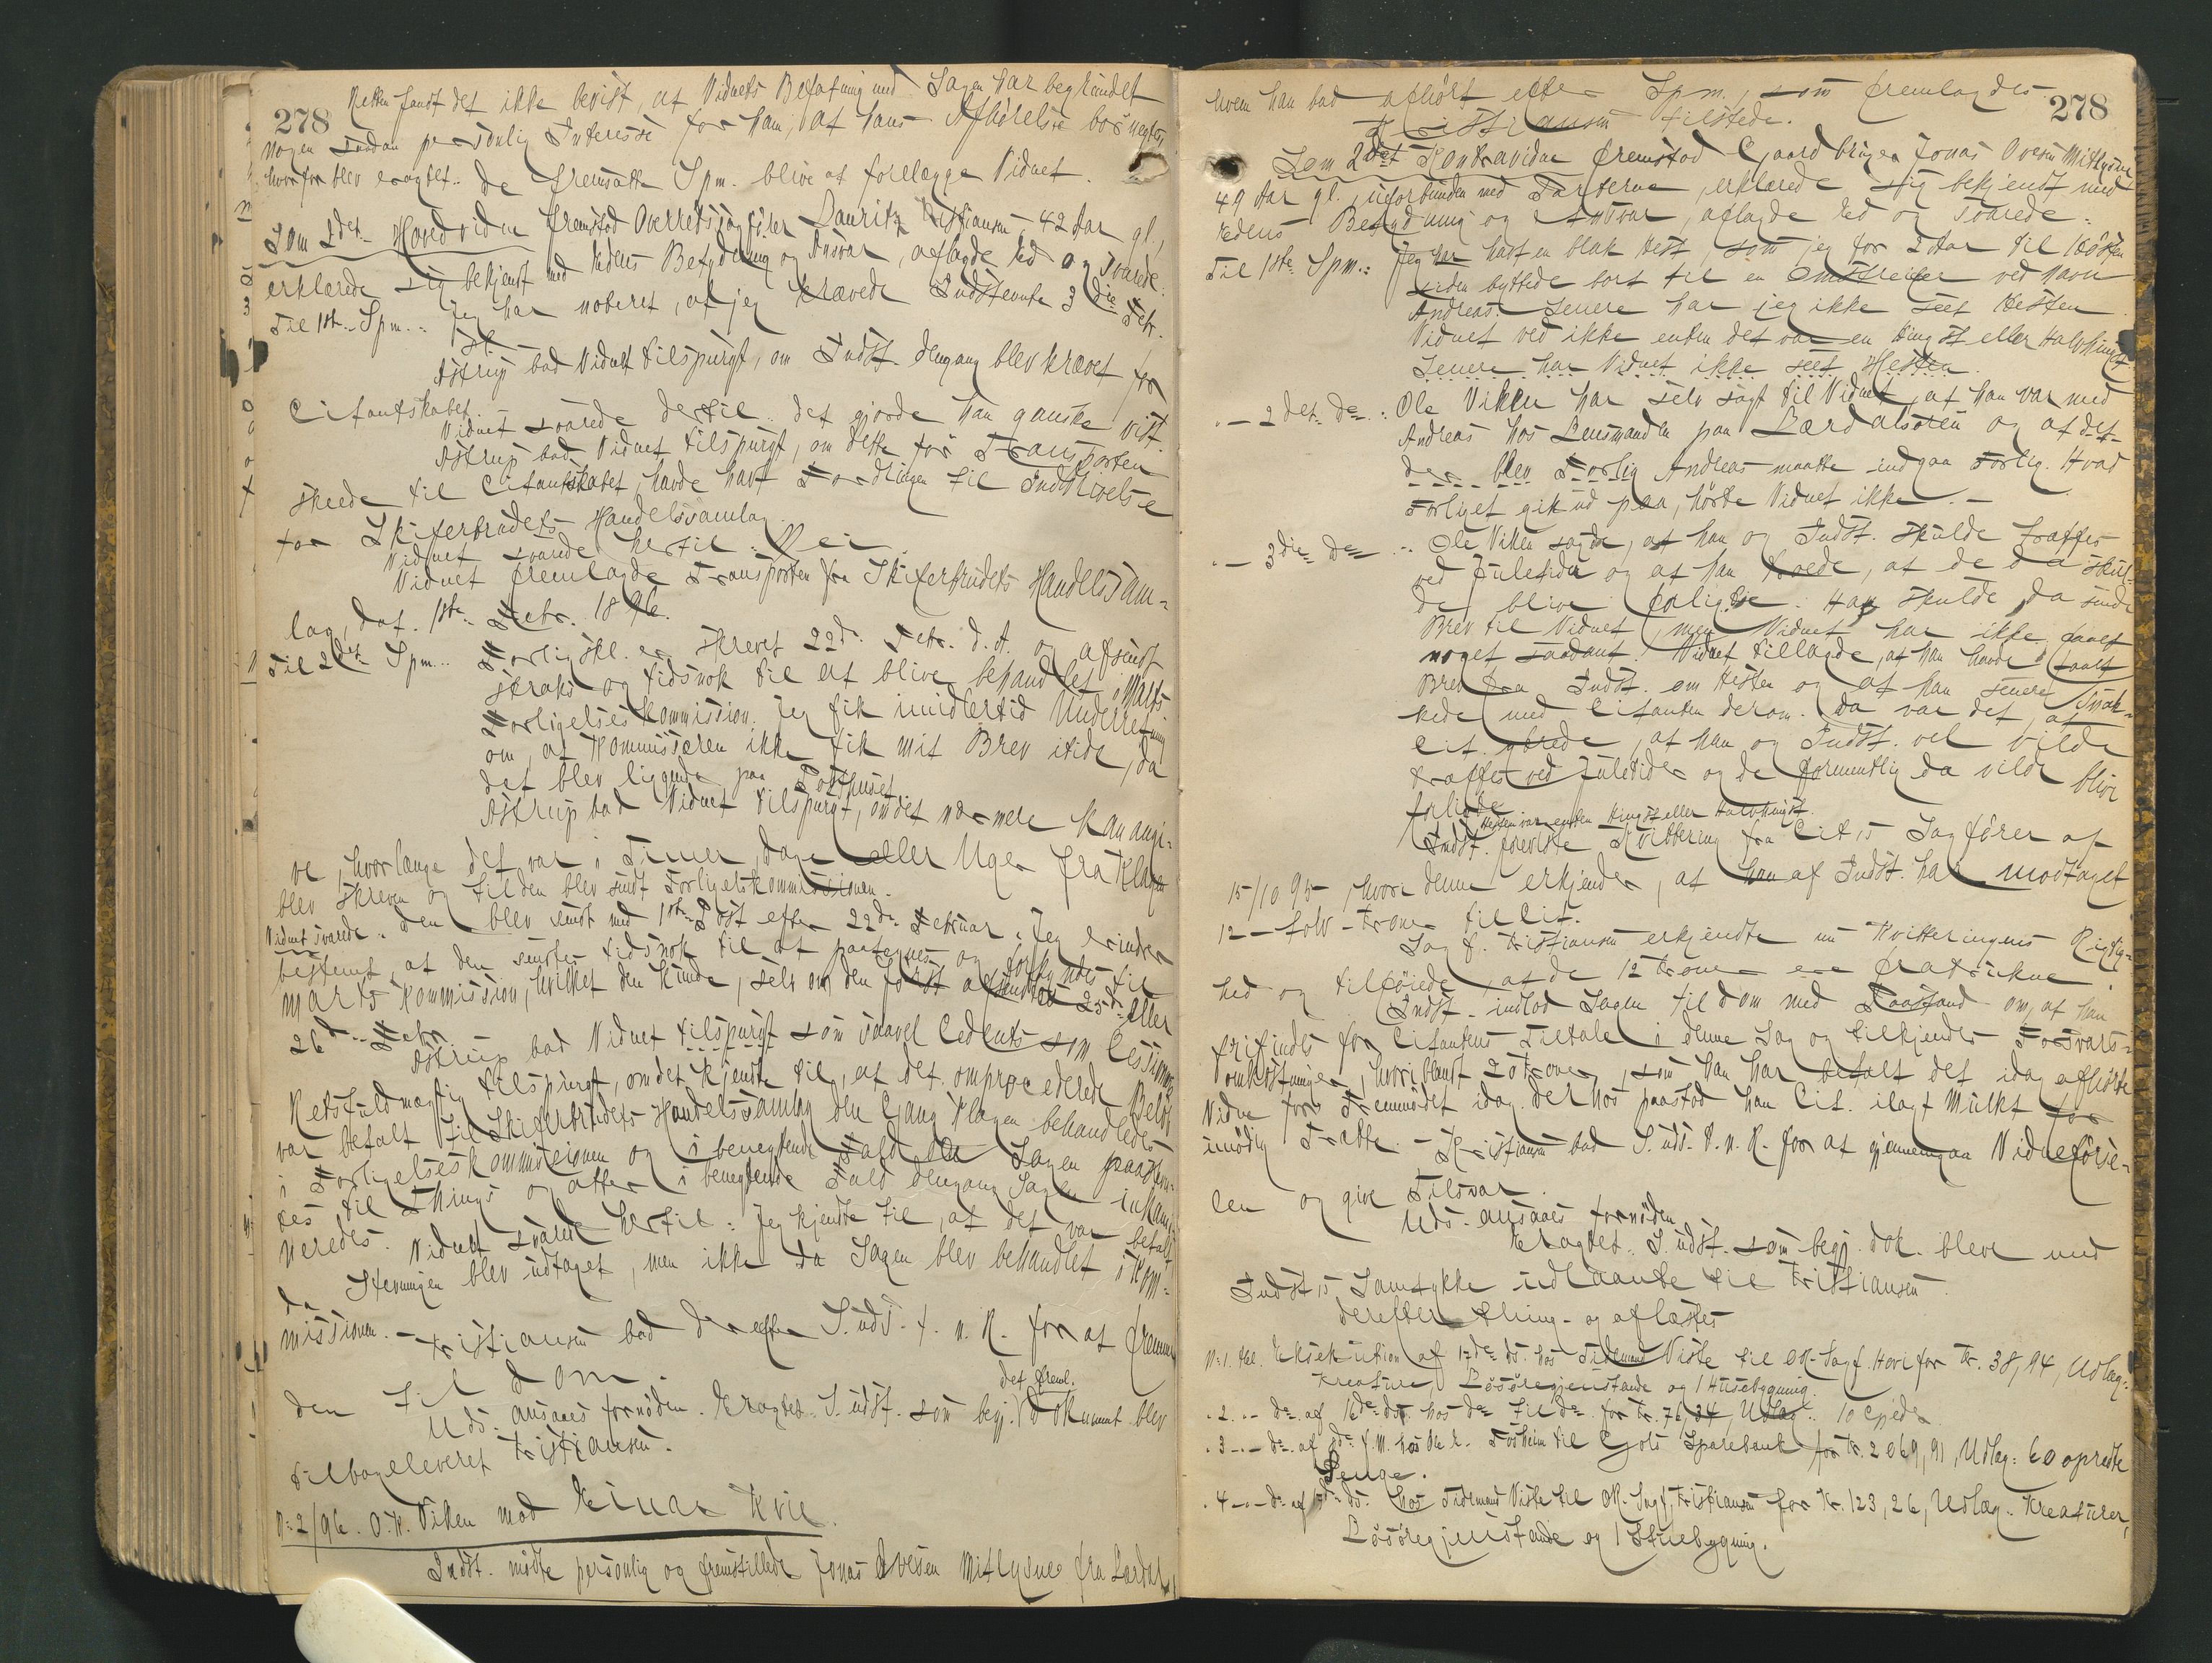 278
Retten fandt det ikke bevist, at Vidnets Befatning med Sagen har begrundet
nogen saadan personlig Interesse for ham, at hans Afhørelse bør negtes,
hvorfor blev eragtet: De fremsatte Spm. blive at forelægge Vidnet.
Som 2det Hovedvidne fremstod Overretssagfører Lauritz Kristiansen, 42 Aar gl.,
erklærede sig bekjendt med Edens Betydning og Ansvar, aflagde Ed og svarede:
Til 1ste Spm.: Jeg har noteret, at jeg krævede Indstevnte 3die Febr.
Astrup bad Vidnet tilspurgt, om Indst. dengang blev krævet for
Citantskabet.
Vidnet svarede dertil: det gjorde han ganske vist.
Astrup bad Vidnet tilspurgt, om dette før Transporten
skeede til Citantskabet, havde havt Fordringen til Inddrivelse
for Skiferbrudets Handelssamlag.
Vidnet svarede hertil: Nei.
Vidnet fremlagde Transporten fra Skiferbrudets Handelssam-
lag, dat. 1ste Febr. 1896.
Til 2det Spm.: Forligskl. er skrevet 22de Febr. d. A. og afsendt
straks og tidsnok til at blive behandlet i Marts
Forligelseskommission. Jeg fik imidlertid Underretning
om, at Kommissæren ikke fik mit Brev itide, da
det blev liggende paa Posthuset.
Astrup bad Vidnet tilspurgt, om det nærmere kan angi-
ve, hvor længe det var i Timer, Dage eller Uger fra Klagen
blev skreven og til den blev sendt Forligelskommissionen.
Vidnet svarede: den blev sendt med 1ste Post efter 22de Februar. Jeg erindrer
bestemt, at den sendtes tidsnok til at paategnes og forkyndes til
Marts Kommission, hvilket den kunde, selv om den først afsendtes 25de eller
26de Febr.
Astrup bad Vidnet tilspurgt som saavel Cedents som Cessionars
Retsfuldmægtig tilspurgt, om det kjendte til, at det omprocederede Beløb
var betalt til Skiferbrudets Handelssamlag den Gang Klagen behandledes
i Forligelseskommissionen og i benegtende Fald da Sagen paastevn-
tes til Things og atter i benegtende Fald dengang Sagen inkami-
neredes. Vidnet svarede hertil: Jeg kjendte til, at det var betalt
da Stevningen blev udtaget, men ikke da Sagen blev behandlet i Kom-
missionen. -
Kristiansen bad derefter S. uds. t. n. R. for at fremme
den til Dom.
Uds. ansaaes fornøden. Eragtet: S. udst. som begj. det freml. Dokument blev
tilbageleveret Kristiansen.
N: 2/96. O. K. Viken mod Einar Kvie.
Indst. mødte personlig og fremstillede Jonas Ovesen Mitlysne fra Lærdal,
278
hvem han bad afhørt efter Spm., som fremlagdes
Kristiansen tilstede.
Som 2det Kontravidne fremstod Gaardbruger Jonas Ovesen Mitlysne
49 Aar gl., uforbunden med Parterne, erklærede sig bekjendt med
Edens Betydning og Ansvar, aflagde Ed og svarede:
Til 1ste Spm.: Jeg har havt en blak Hest, som jeg for 2 Aar til Høsten
siden byttede bort til en Omstreifer ved Navn
Andreas. Senere har jeg ikke seet Hesten
Vidnet ved ikke enten det var en Hingst eller Halvhingst
Senere har Vidnet ikke seet Hesten.
" - 2det do: Ole Viken har selv sagt til Vidnet, at han var med
Andreas hos Lensmanden paa Lærdalsøren og at det
der blev Forlig Andreas maatte indgaa Forlig. Hvad
Forliget gik ud paa, hørte Vidnet ikke. -
" - 3die do: Ole Viken sagde, at han og Indst. skulde træffes
ved Juletider og at han troede, at de da skul-
de blive forligte. Han skulde da sende
Brev til Vidnet, men Vidnet har ikke faaet
noget saadant. Vidnet tillagde, at han havde faaet
Brev fra Indst. om Hesten og at han senere snak-
kede med Citanten derom. Da var det, at
Cit. ytrede, at han og Indst. vel vilde
træffes ved Juletider og de formentlig da vilde blive
forligte.
Hesten var enten Hingst eller Halvhingst.
Indst. foreviste Kvittering fra Cit.s Sagfører af
15/10 95, hvori denne erkjender, at han af Indst. har modtaget
12 - tolv - Kroner til Cit.
Sagf. Kristiansen erkjendte nu Kvitteringens Rigtig-
hed og tilføiede, at de 12 Kroner ere fratrukne.
Indst. indlod Sagen til Dom med Paastand om, at han
frifindes for Citantens Tiltale i denne Sag og tilkjendes Forsvars-
omkostninger, hvoriblandt 20 Kroner, som han har betalt det idag afhørte
Vidne for Fremmødet idag. Derhos paastod han Cit. ilagt Mulkt for
unødig Trætte. - Kristiansen bad S. uds. t. n. R. for at gjennemgaa Vidneførse-
len og give Tilsvar.
Uds. ansaaes fornøden
Eragtet: S. udst. som begj. Dok. bleve med
Indst.s Samtykke udlaante til Kristiansen.
Derefter thing- og aflæstes
N: 1. Exekution af 17de ds. hos Tidemand Viste til OR-Sagf. Hovi for Kr. 38,94, Udlæg:
Kreature, Løsøregjenstande og 1 Husebygning.
" 2. " do af 16de ds. hos do til do for Kr. 76,34, Udlæg: 10 Gjeder
" 3 - " do af do f. M. hos til Sparebank for Kr. 2069,91, Udlæg: 60 opredte
Senge.
" 4 - " do af ds. hos Tidemand Viste til OR-Sagf. Kristiansen for Kr. 123,26, Udlæg: Kreaturer,
Løsøregjenstande og 1 Stuebygning.